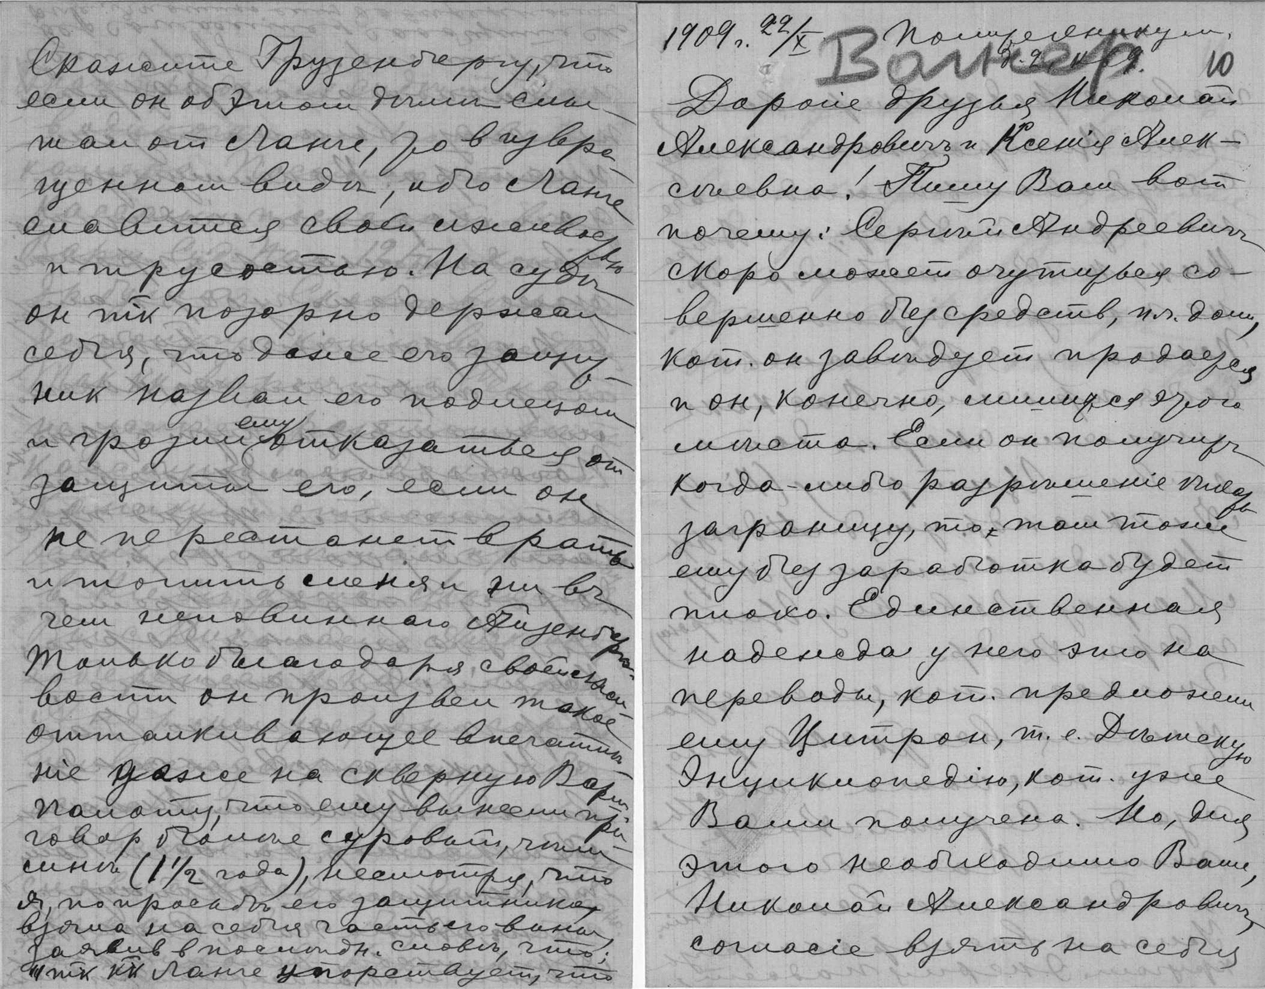 Скажите Грузенбергу, что
если он об этом дѣлѣ слы-
шал от Ланге, то в извра-
щенном видѣ, ибо Ланге
славится своей лживостью
и трусостью. На судѣ
он тк позорно держал
себя, что даже его защит-
ник назвал его подлецом
и грозил ему отказаться от
защиты его, если он
не перестанет врать
и топить меня и ни въ
чем неповинного Айзенберга.
Только благодаря своей лжи-
вости он произвел такое
отталкивающее впечатлѣ-
ніе даже на скверную Варш.
палату, что ему вынесли при-
говор болѣе суровый, чѣм
(1½ года), несмотря, что
я, по просьбѣ его защитника,
взяла на себя часть его вины,
заявив в послѣдн. словѣ, что:
"тк кк Ланге упорствует, что
1909 г. 22/X
Валкер
10
Дорогіе друзья Николай
Александровичъ и Ксенія Алек-
сѣевна! Пишу Вам вот
почему: Сергѣй Андреевичъ
скоро может очутиться со-
вершенно без средств, дом,
кот. он завѣдует продается
и он, конечно, лишится этого
мѣста. Если он получитъ
когда-либо разрѣшеніе выѣзда
заграницу, то и там тоже
ему без заработка будет
плохо. Единственная
надежда у него это на
переводы, кот. предложены
ему Цитрон, т. е. Дѣтскую
Энциклопедію, кот. уже
Вами получена. Но, для
этого необходимо Ваше,
Николай Александровичъ,
согласіе взять на себя